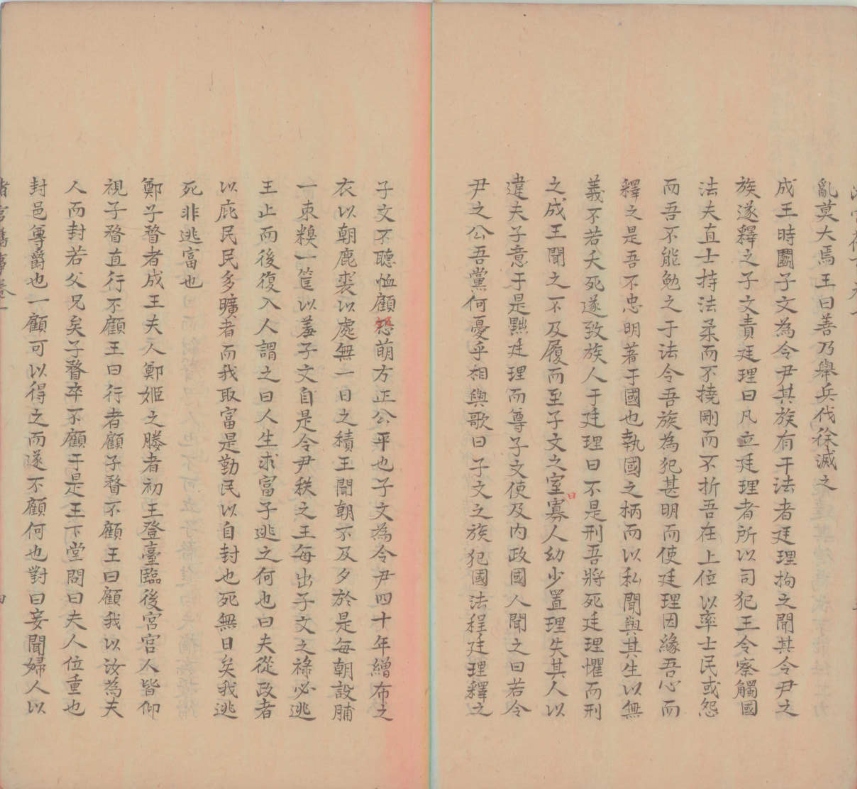 亂莫大焉王曰善乃舉兵伐徐滅之
成王時鬭子文為令尹其族有干法者廷理拘之聞其令尹之
族遂釋之子文責廷理曰凡立廷理者所以司犯王令察觸國
法夫直士持法柔而不撓剛而不折吾在上位以率士民或怨
而吾不能勉之于法令吾族為犯甚明而使廷理因緣吾心而
釋之是吾不忠明著于國也執國之柄而以私聞與其生以無
義不若夭死遂致族人于廷理曰不是刑吾將死廷理懼而刑
之成王聞之不及履而至子文之室寡人幼少置理失其人以
違夫子意于是黜廷理而尊子文使及内政國人聞之曰若令
尹之公吾黨何憂乎相與歌曰子文之族犯國法程廷理釋之
子文不聽恤顧怨萌方正公平也子文為令尹四十年繒布之
衣以朝鹿裘以處無一日之積王聞朝不及夕於是每朝設脯
一束糗一筐以羞子文自是令尹秩之王每出子文之祿必逃
王止而後復入人謂之曰人生求富子逃之何也曰夫從政者
以庇民民多曠者而我取富是勤民以自封也死無日矣我逃
死非逃富也
鄭子瞀者成王夫人鄭姬之媵者初王登臺臨後宮宮人皆仰
視子瞀直行不顧王曰行者顧子瞀不顧王曰顧我以汝為夫
人而封若父兄矣子瞀卒不顧于是王下堂問曰夫人位重也
封邑尊爵也一顧可以得之而遂不顧何也對曰妾聞婦人以